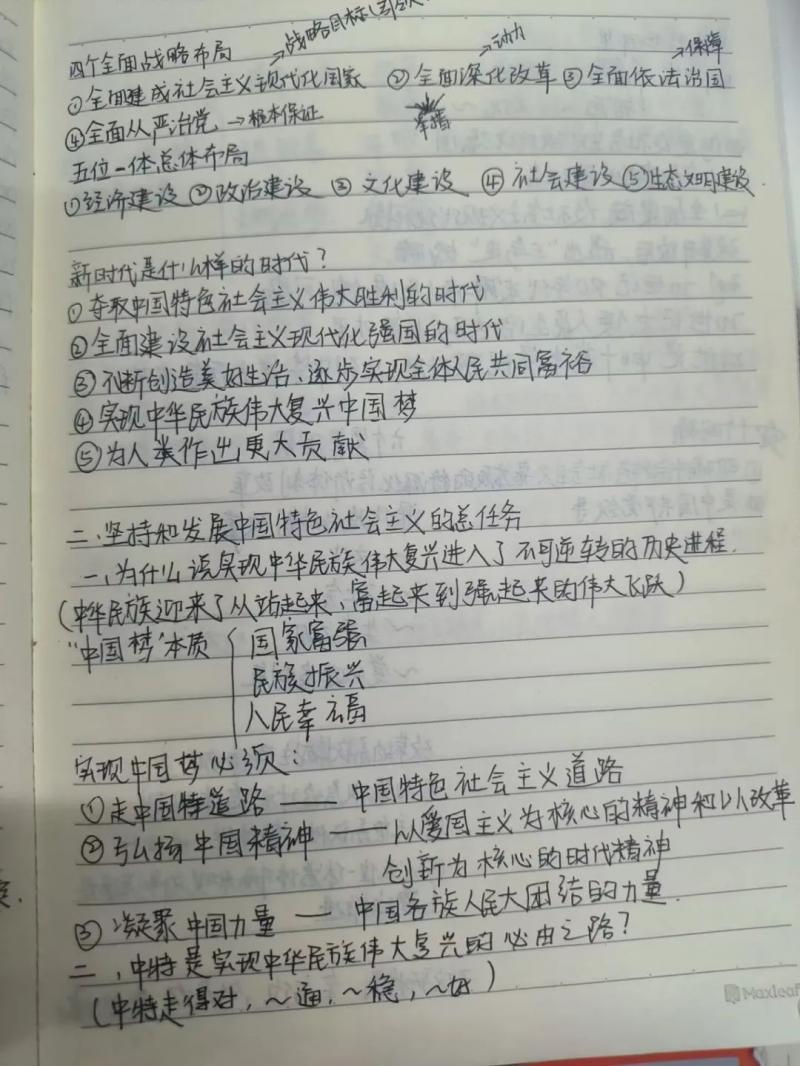 →战略目标(引领
→动力
→保障
四个全面战略布局
①全面建成社会主义现代化国家 ②全面深化改革 ③全面依法治国
④全面从严治党 →根本保证
举措
五位一体总体布局
①经济建设 ②政治建设 ③ 文化建设 ④ 社会建设 ⑤生态文明建设.
新时代是什么样的时代?
①夺取中国特色社会主义伟大胜利的时代
②全面建设社会主义现代化强国的时代
③不断创造美好生活、逐步实现全体人民共同富裕
④实现中华民族伟大复兴中国梦
⑤为人类作出更大贡献
二、坚持和发展中国特色社会主义的总任务
一、为什么说实现中华民族伟大复兴进入了不可逆转的历史进程.
(中华民族迎来了从站起来、富起来到强起来的伟大飞跃)
"中国梦"本质 { 国家富强
民族振兴
人民幸福
实现中国梦必须:
①走中国特道路 —— 中国特色社会主义道路
②弘扬中国精神 —— 以爱国主义为核心的精神和以改革
创新为核心的时代精神
③凝聚中国力量 — 中国各族人民大团结的力量.
二、中特是实现中华民族伟大复兴的必由之路?
(中特走得对,~通,~稳,~好)
Maxleaf